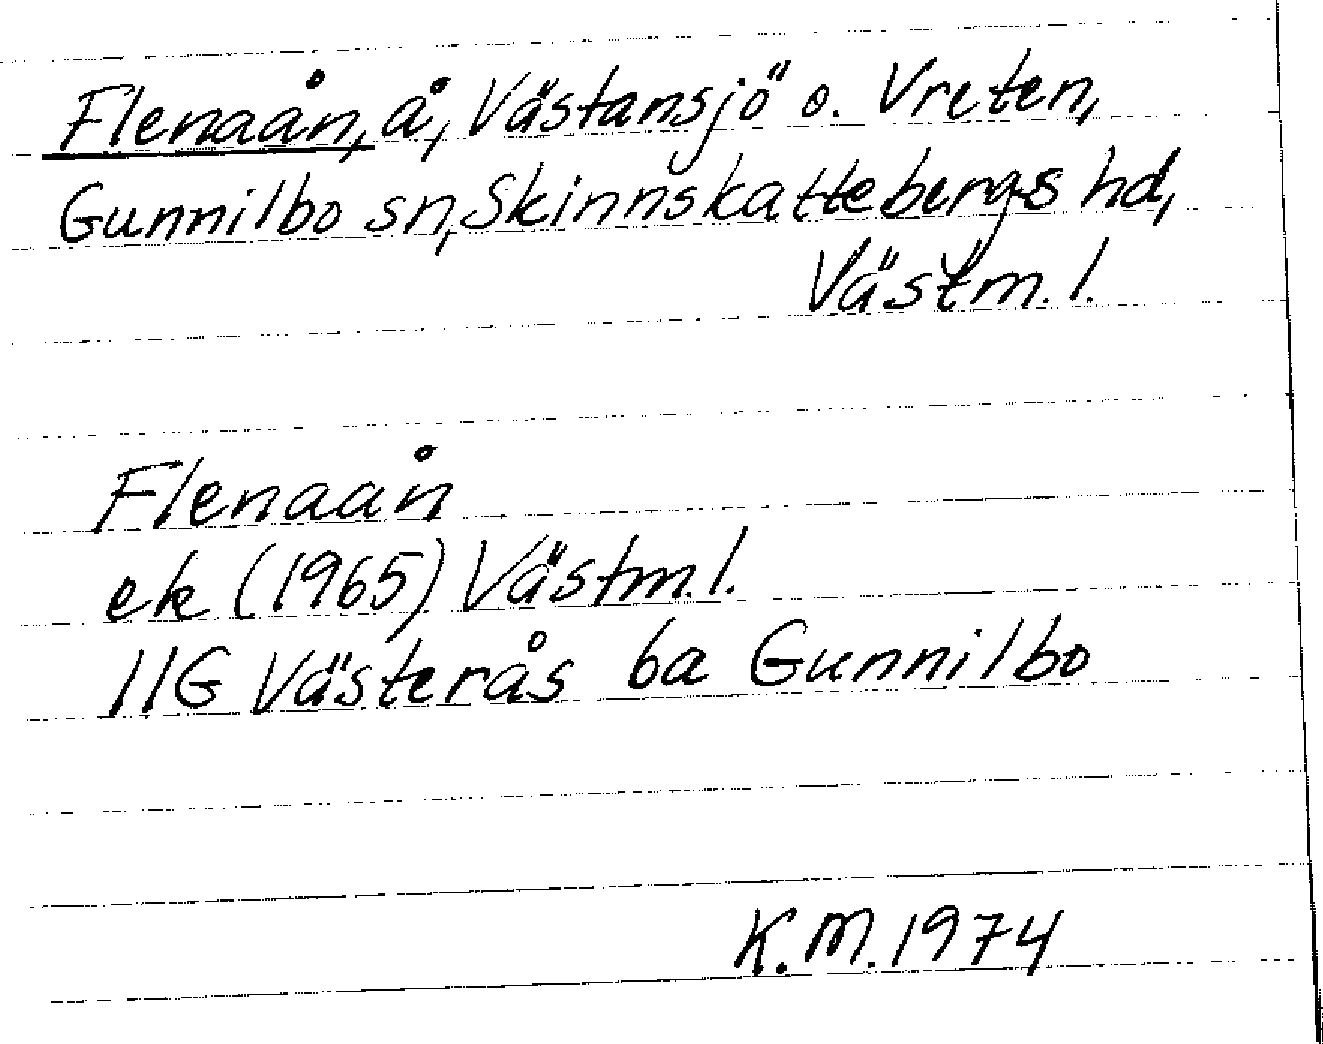 Flenaån, å, Västansjö o. Vreten,
Gunnilbo sn, Skinnskattebergs hd,
Västm. l.
Flenaån
ek (1965) Västm. l.
11G Västerås 6a Gunnilbo
K.M. 1974